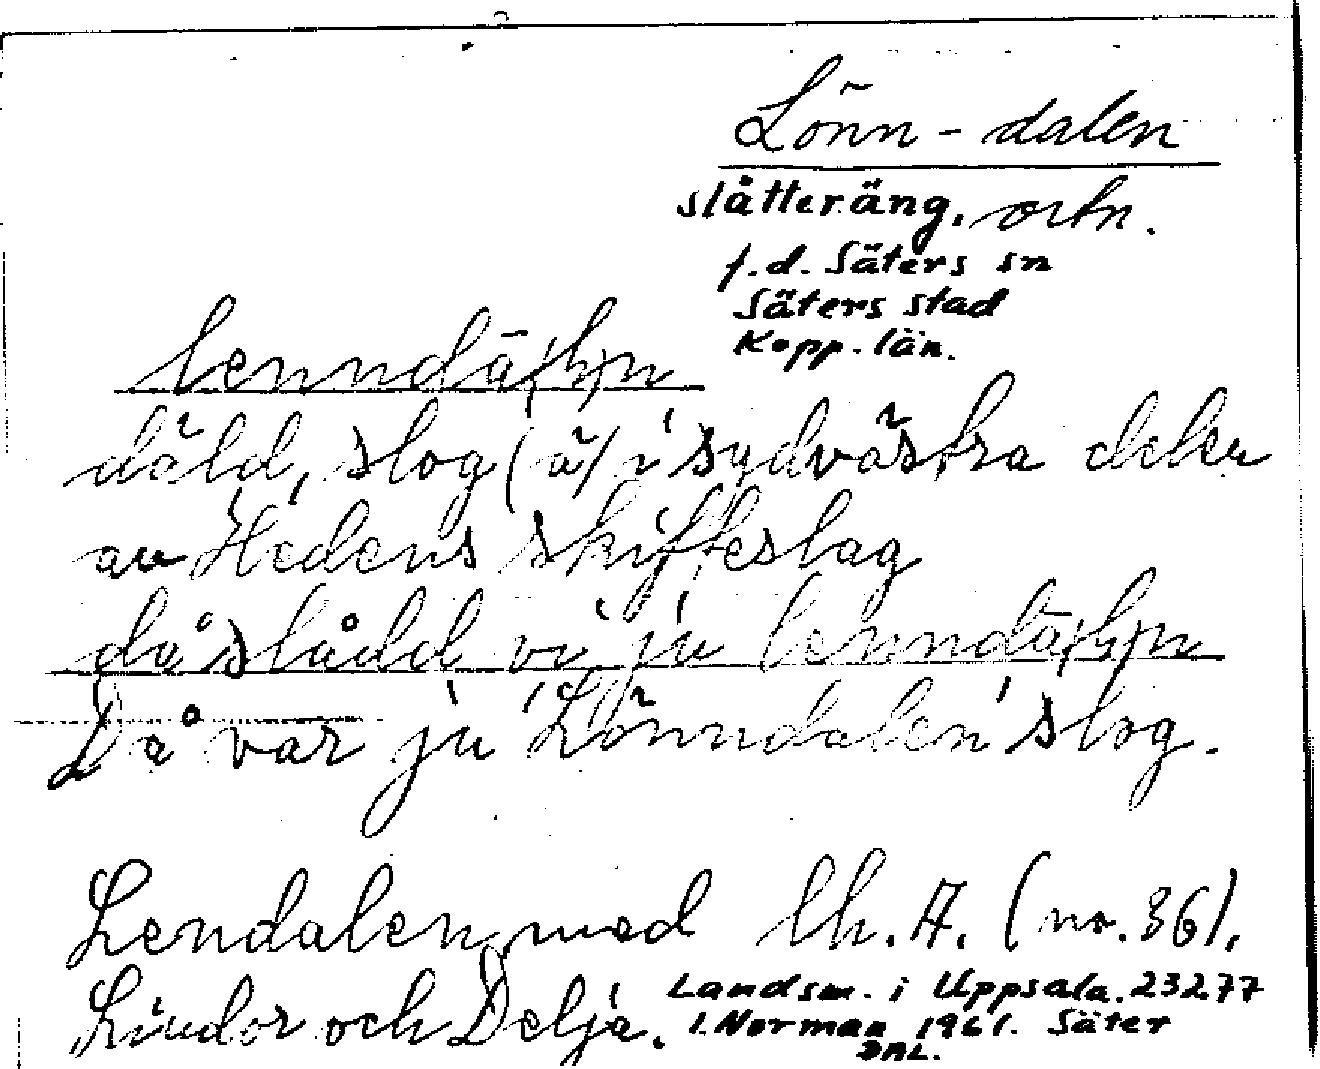 Lönn-dalen
slåtteräng, ortn.
f.d. Säters sn
Säters stad
Kopp. län.
lenndā(l)n
däld, slog (ä) i sydvästra delen
av Hedens skifteslag
då slådd vi ju lenndā(l)n
Då var ju Lönndalen slog.
Lendalen med lh. A. (no. 36).
Lindor och Delja.
Landsm. i Uppsala. 23277
I. Norman 1961. Säter
DAL.